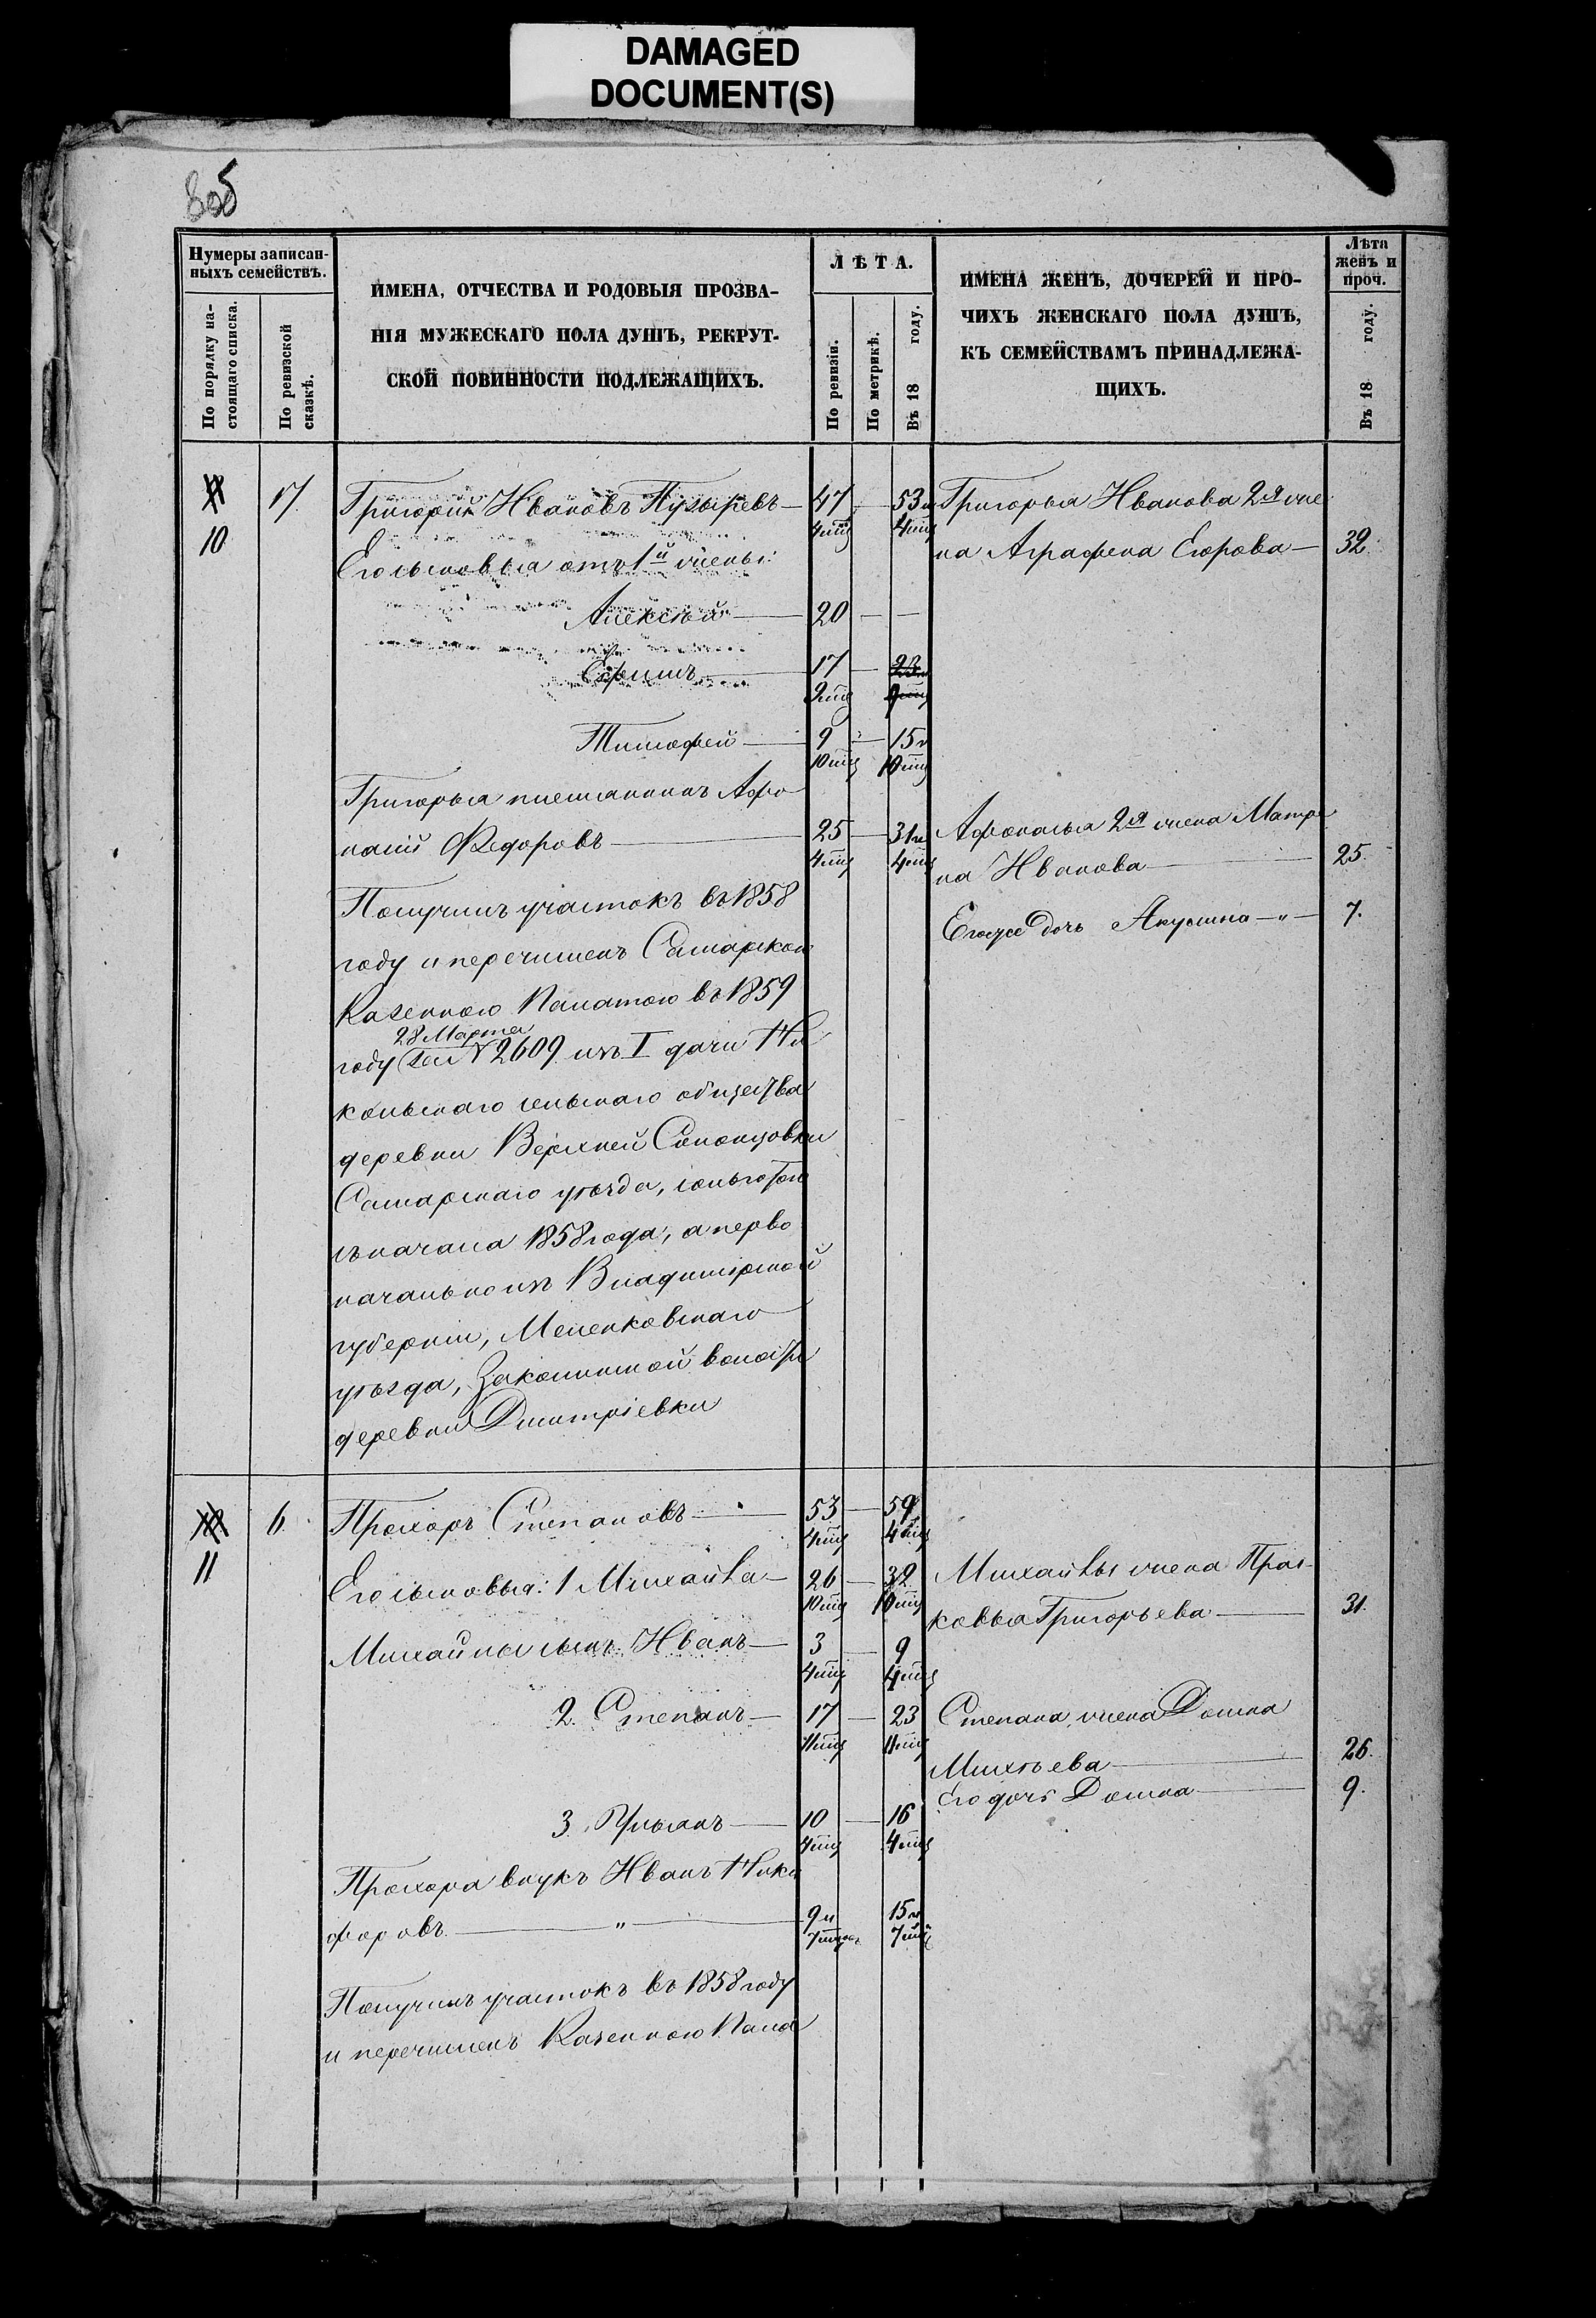 DAMAGED
DOCUMENT(S)
805
Нумеры записан-
ныхъ семействъ.
По порядку на-
стоящаго списка.
По ревизской
сказкѣ.
ИМЕНА, ОТЧЕСТВА И РОДОВЫЯ ПРОЗВА-
НІЯ МУЖЕСКАГО ПОЛА ДУШЪ, РЕКРУТ-
СКОЙ ПОВИННОСТИ ПОДЛЕЖАЩИХЪ.
ЛѢТА.
По ревизіи.
По метрикѣ.
Въ 18 году.
ИМЕНА ЖЕНЪ, ДОЧЕРЕЙ И ПРО-
ЧИХЪ ЖЕНСКАГО ПОЛА ДУШЪ,
КЪ СЕМЕЙСТВАМЪ ПРИНАДЛЕЖА-
ЩИХЪ.
Лѣта
женъ и
проч.
Въ 18 году.
10
17
Григорій Ивановъ Пузыревъ — 47 — 53
4 мц 4 мц
Григорья Иванова 2я же
на Аграфена Егорова — 32
Его сыновья отъ 1й жены:
Алексѣй — 20 — —
Ефимъ — 17 — 23
9 мц 9 мц
Тимофей — 9 — 15
10 мц 10 мц
Григорья племянникъ Афо
насій Федоровъ — 25 — 31
4 мц 4 мц
Афонасья 2я жена Матре
на Иванова — 25.
Егоже дочь Акулина —"— 7.
Получилъ участокъ въ 1858
году и перечисленъ Самарскою
Казенною Палатою въ 1859
28 Марта
году за № 2609 изъ I дачи Ни
кольскаго сельскаго общества
деревни Верхней
Самарскаго уѣзда, съ льготою
съ начала 1858 года, а перво
начально изъ Владимірской
губерніи, Меленковскаго
уѣзда, волости
деревни Дмитріевки
11
6.
Прохоръ Степановъ — 53 — 59
4 мц 4 мц
Его сыновья: 1 Михайла — 26 — 32
10 мц 10 мц
Михайлы жена Прас-
ковья Григорьева — 31.
Михайлы сынъ Иванъ — 3 — 9
4 мц 4 мц
2. Степанъ — 17 — 23
11 мц 11 мц
Степана жена Домна
Михѣева — 26.
Его дочь Домна — 9.
3. Ульянъ — 10 — 16
4 мц 4 мц
Прохора внукъ Иванъ Ники
форовъ —"— 9 15
7 мц 7 мц
Получилъ участокъ въ 1858 году
и перечисленъ Казенною Пала